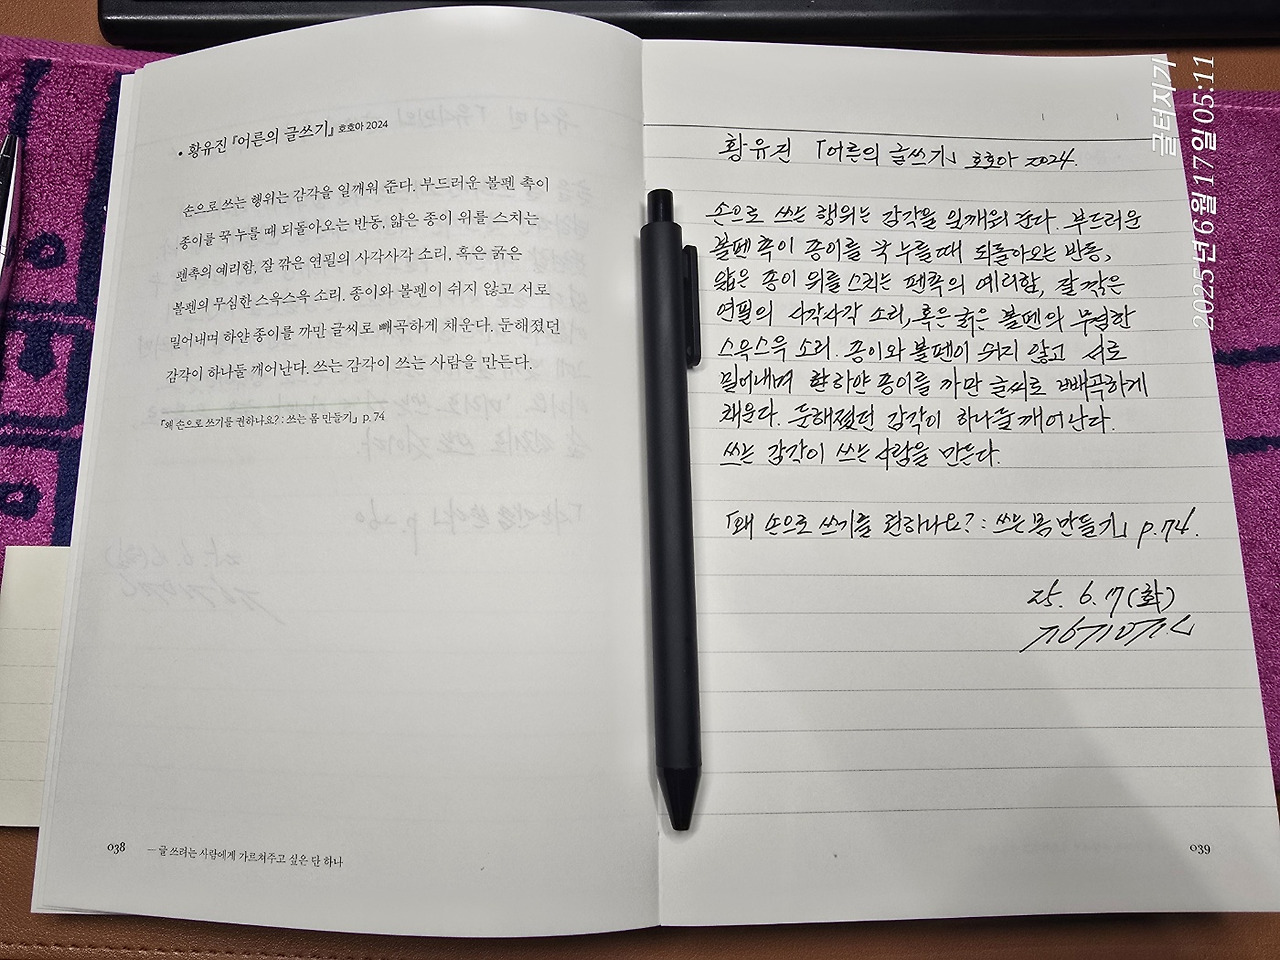 • 황유진 『어른의 글쓰기』 호호아 2024
손으로 쓰는 행위는 감각을 일깨워 준다. 부드러운 볼펜 촉이
종이를 꾹 누를 때 되돌아오는 반동, 얇은 종이 위를 스치는
펜촉의 예리함, 잘 깎은 연필의 사각사각 소리, 혹은 굵은
볼펜의 무심한 스윽스윽 소리. 종이와 볼펜이 쉬지 않고 서로
밀어내며 하얀 종이를 까만 글씨로 빼곡하게 채운다. 둔해졌던
감각이 하나둘 깨어난다. 쓰는 감각이 쓰는 사람을 만든다.
「왜 손으로 쓰기를 권하나요? : 쓰는 몸 만들기」 p. 74
038
— 글 쓰려는 사람에게 가르쳐주고 싶은 단 하나
황유진 「어른의 글쓰기」 호호아 2024.
손으로 쓰는 행위는 감각을 일깨워 준다. 부드러운
볼펜 촉이 종이를 꾹 누를 때 되돌아오는 반동,
얇은 종이 위를 스치는 펜촉의 예리함, 잘 깎은
연필의 사각사각 소리, 혹은 굵은 볼펜의 무심한
스윽스윽 소리. 종이와 볼펜이 쉬지 않고 서로
밀어내며 하얀 종이를 까만 글씨로 빼곡하게
채운다. 둔해졌던 감각이 하나둘 깨어난다.
쓰는 감각이 쓰는 사람을 만든다.
「왜 손으로 쓰기를 권하나요? : 쓰는 몸 만들기」 p.74.
25. 6. 17 (화)
039
글터지기
2025년 6월 17일 05:11